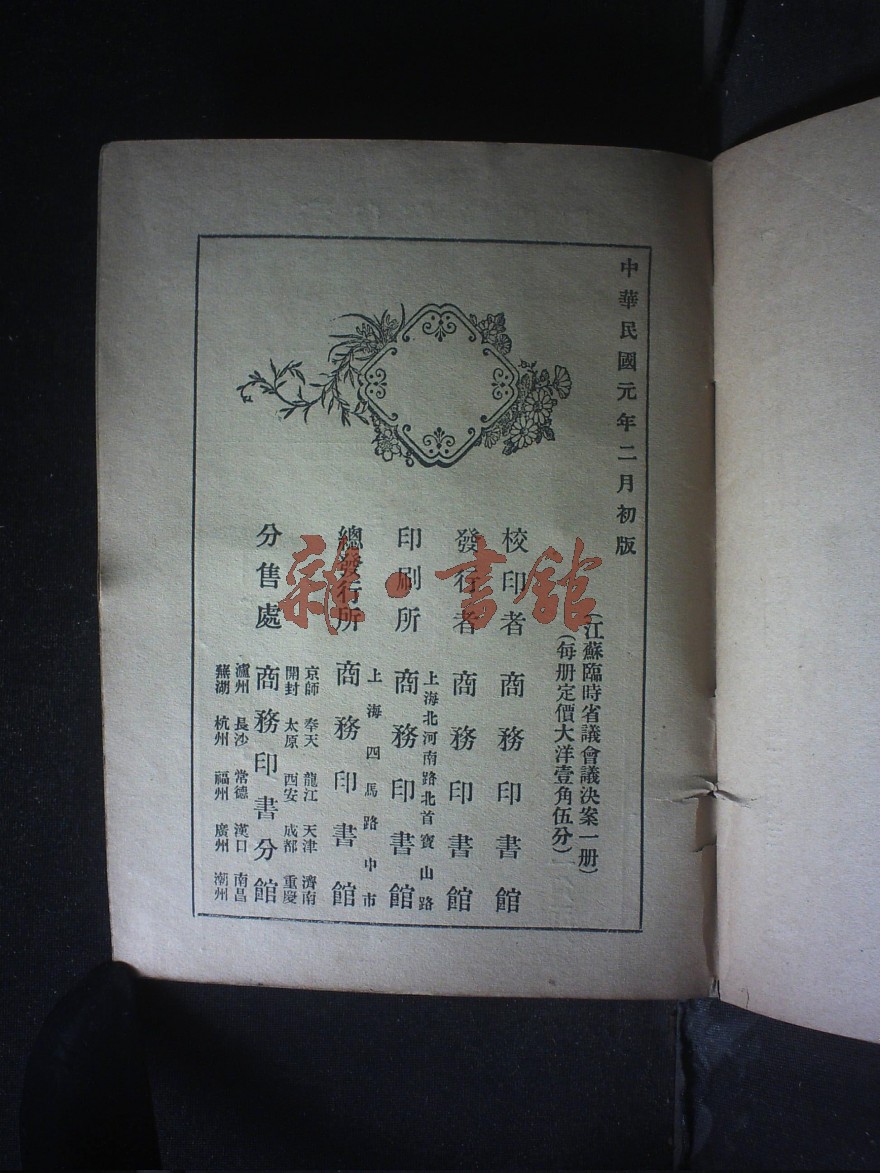 中華民國元年二月初版
(江蘇臨時省議會議決案一册)
(每册定價大洋壹角伍分)
校印者 商務印書館
發行者 商務印書館
上海北河南路北首寶山路
印刷所 商務印書館
上海四馬路中市
總發行所 商務印書館
京師 奉天 龍江 天津 濟南
開封 太原 西安 成都 重慶
分售處 商務印書分館
瀘州 長沙 常德 漢口 南昌
蕪湖 杭州 福州 廣州 潮州
雜·書館